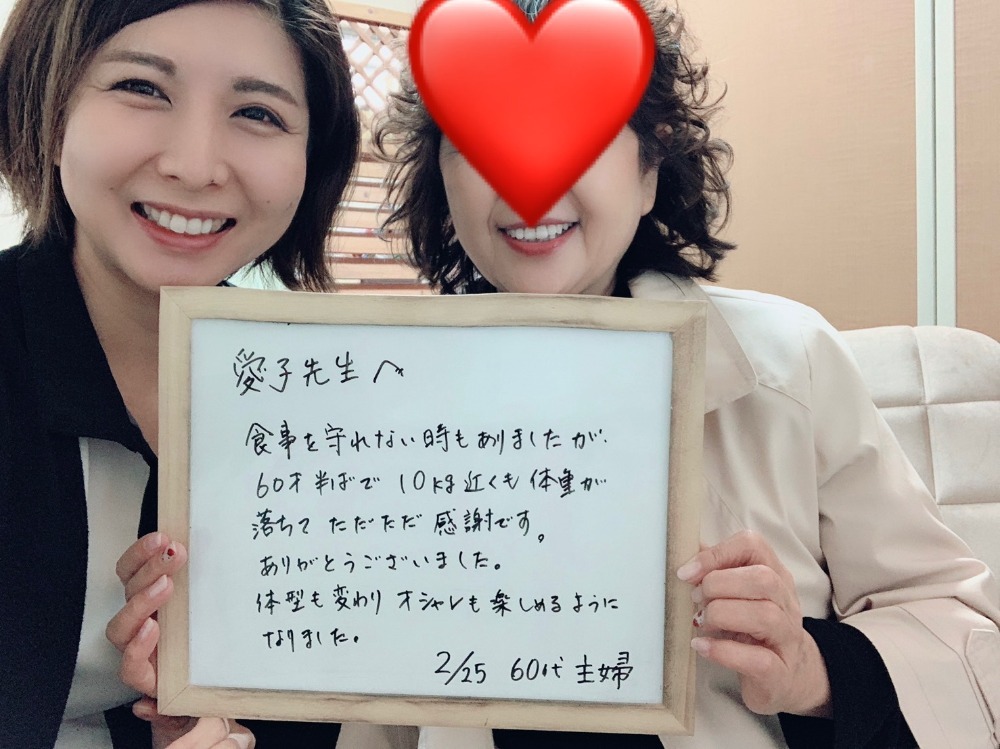 愛子先生へ
食事を守れない時もありましたが、
60才半ばで10kg近くも体重が
落ちてただただ感謝です。
ありがとうございました。
体型も変わりオシャレも楽しめるように
なりました。
2/25 60代 主婦